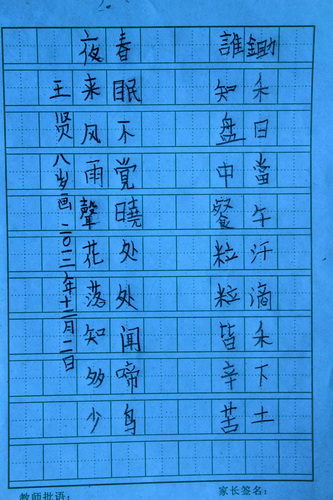 鋤禾日當午汗滴禾下土
誰知盘中餐粒粒皆辛苦
春眠不觉曉处处闻啼鸟
夜来风雨聲花落知多少
王贤八岁画二0二一年十二月二日
教师批语：
家长签名：